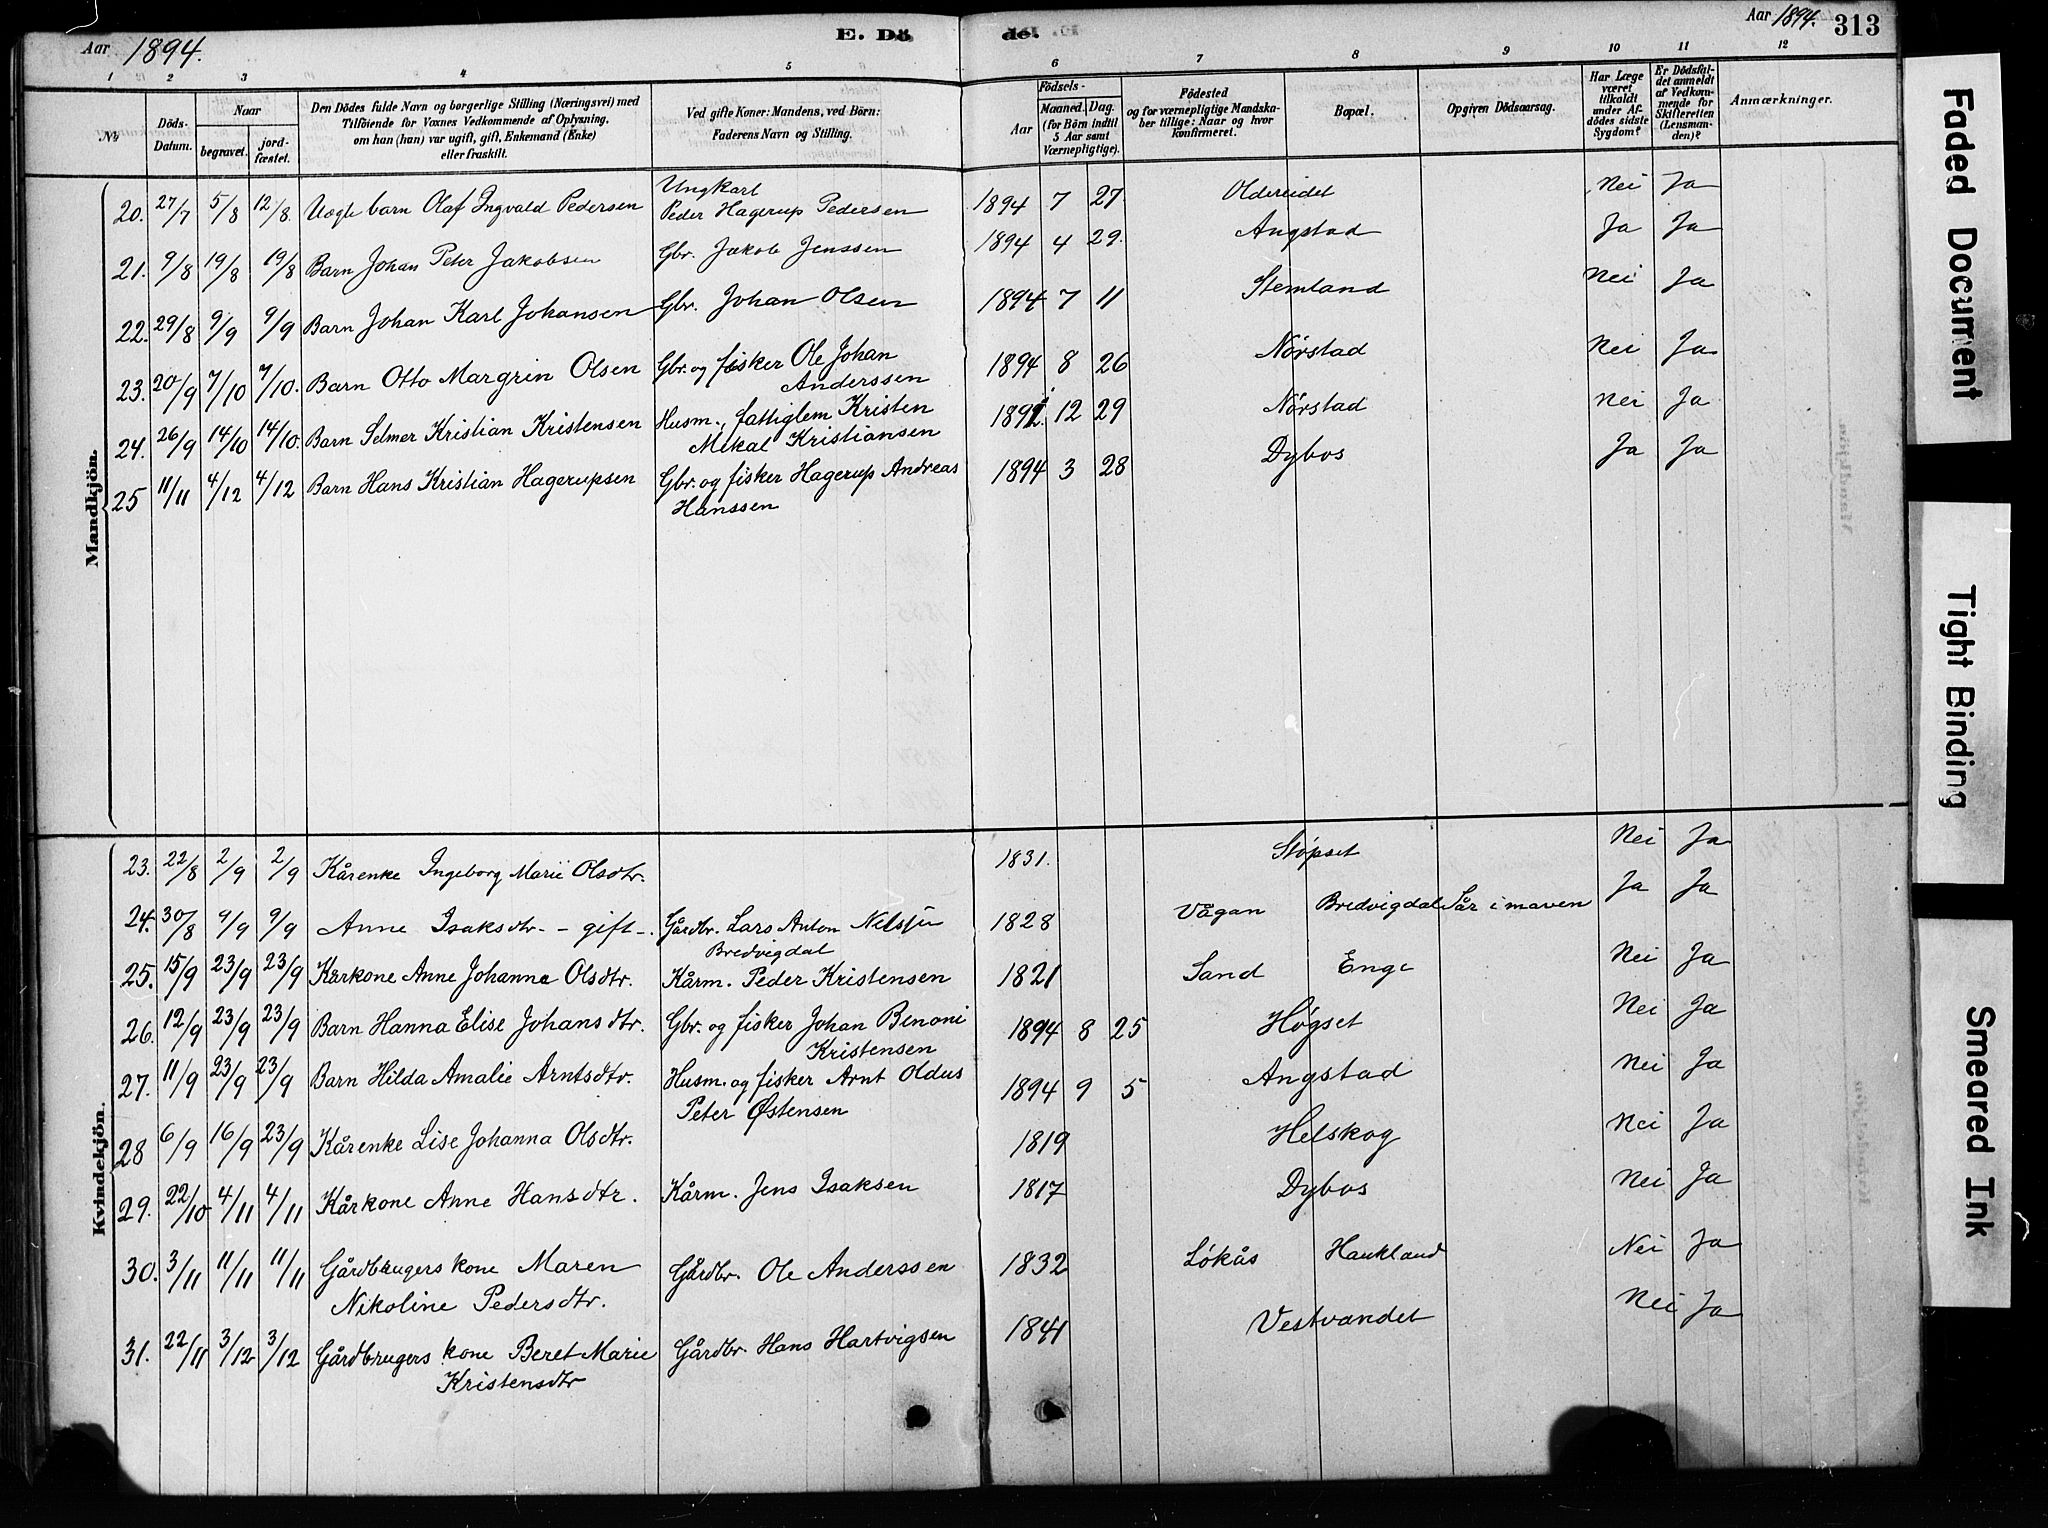 Aar 1894. E. Döde. Aar 1894. 313
1 2 3 4 5 6 7 8 9 10 11 12
No Döds-Datum. Naar begravet. jordfæstet. Den Dödes fulde Navn og borgerlige Stilling (Næringsvei) med Tilföiende for Voxnes Vedkommende af Oplysning, om han (hun) var ugift, gift, Enkemand (Enke) eller fraskilt. Ved gifte Koner: Mandens, ved Börn: Faderens Navn og Stilling. Födsels- Aar Maaned. Dag. (for Börn indtil 5 Aar samt Værnepligtige). Födested og for værnepligtige Mandskaber tillige: Naar og hvor konfirmeret. Bopæl. Opgiven Dödsaarsag. Har Læge været tilkaldt under Afdödes sidste Sygdom? Er Dödsfaldet anmeldt af Vedkommende for Skifteretten (Lensmanden)? Anmærkninger.
Mandkjön.
20. 27/7 5/8 12/8 Uegte barn Olaf Ingvald Pedersen Ungkarl Peder Hagerup Pedersen 1894 7 27 Oldereidet Nei Ja
21. 9/8 19/8 19/8 Barn Johan Peter Jakobsen Gbr. Jakob Jenssen 1894 4 29. Angstad Ja Ja
22. 29/8 9/9 9/9 Barn Johan Karl Johansen Gbr. Johan Olsen 1894 7 11 Stemland Nei Ja
23. 20/9 7/10 7/10. Barn Otto Margrin Olsen Gbr. og fisker Ole Johan Anderssen 1894 8 26 Nørstad Nei Ja
24. 26/9 14/10 14/10. Barn Selmer Kristian Kristensen Husm., fattiglem Kristen Mikal Kristiansen 12 29 Nørstad Nei Ja
25 11/11 4/12 4/12 Barn Hans Kristian Hagerupsen Gbr. og fisker Hagerup Andreas Hanssen 1894 3 28 Dybos Ja Ja
Kvindekjön.
23. 22/8 2/9 2/9 Kårenke Ingeborg Marie Olsdtr. 1831. Støpset Nei Ja
24. 30/8 9/9 9/9 Anne Isaksdtr. - gift -. Gårdbr. Lars Anton Bredvigdal 1828 Vågan Bredvigdal Sår i maven Ja Ja
25. 15/9 23/9 23/9 Kårkone Anne Johanna Olsdtr. Kårm. Peder Kristensen 1821 Sand Enge Nei Ja
26. 12/9 23/9 23/9 Barn Hanna Elise Johansdtr. Gbr. og fisker Johan Benoni Kristensen 1894 8 25 Høgset Nei Ja
27. 11/9 23/9 23/9 Barn Hilda Amalie Arntsdtr. Husm. og fisker Arnt Oldus Peter Østensen 1894 9 5 Angstad Nei Ja
28 6/9 16/9 23/9 Kårenke Lise Johanna Olsdtr. 1819 Helskog Nei Ja
29. 22/10 4/11 4/11 Kårkone Anne Hansdtr. Kårm. Jens Isaksen 1817 Dybos Nei Ja
30. 3/11 11/11 11/11 Gårdbrugers kone Maren Nikoline Pedersdtr. Gårdbr. Ole Anderssen 1832 Løkås Haukland Nei Ja
31. 22/11 3/12 3/12 Gårdbrugers kone Beret Marie Kristensdtr Gårdbr. Hans Hartvigsen 1841 Vestvandet Nei Ja
Faded Document
Tight Binding
Smeared Ink